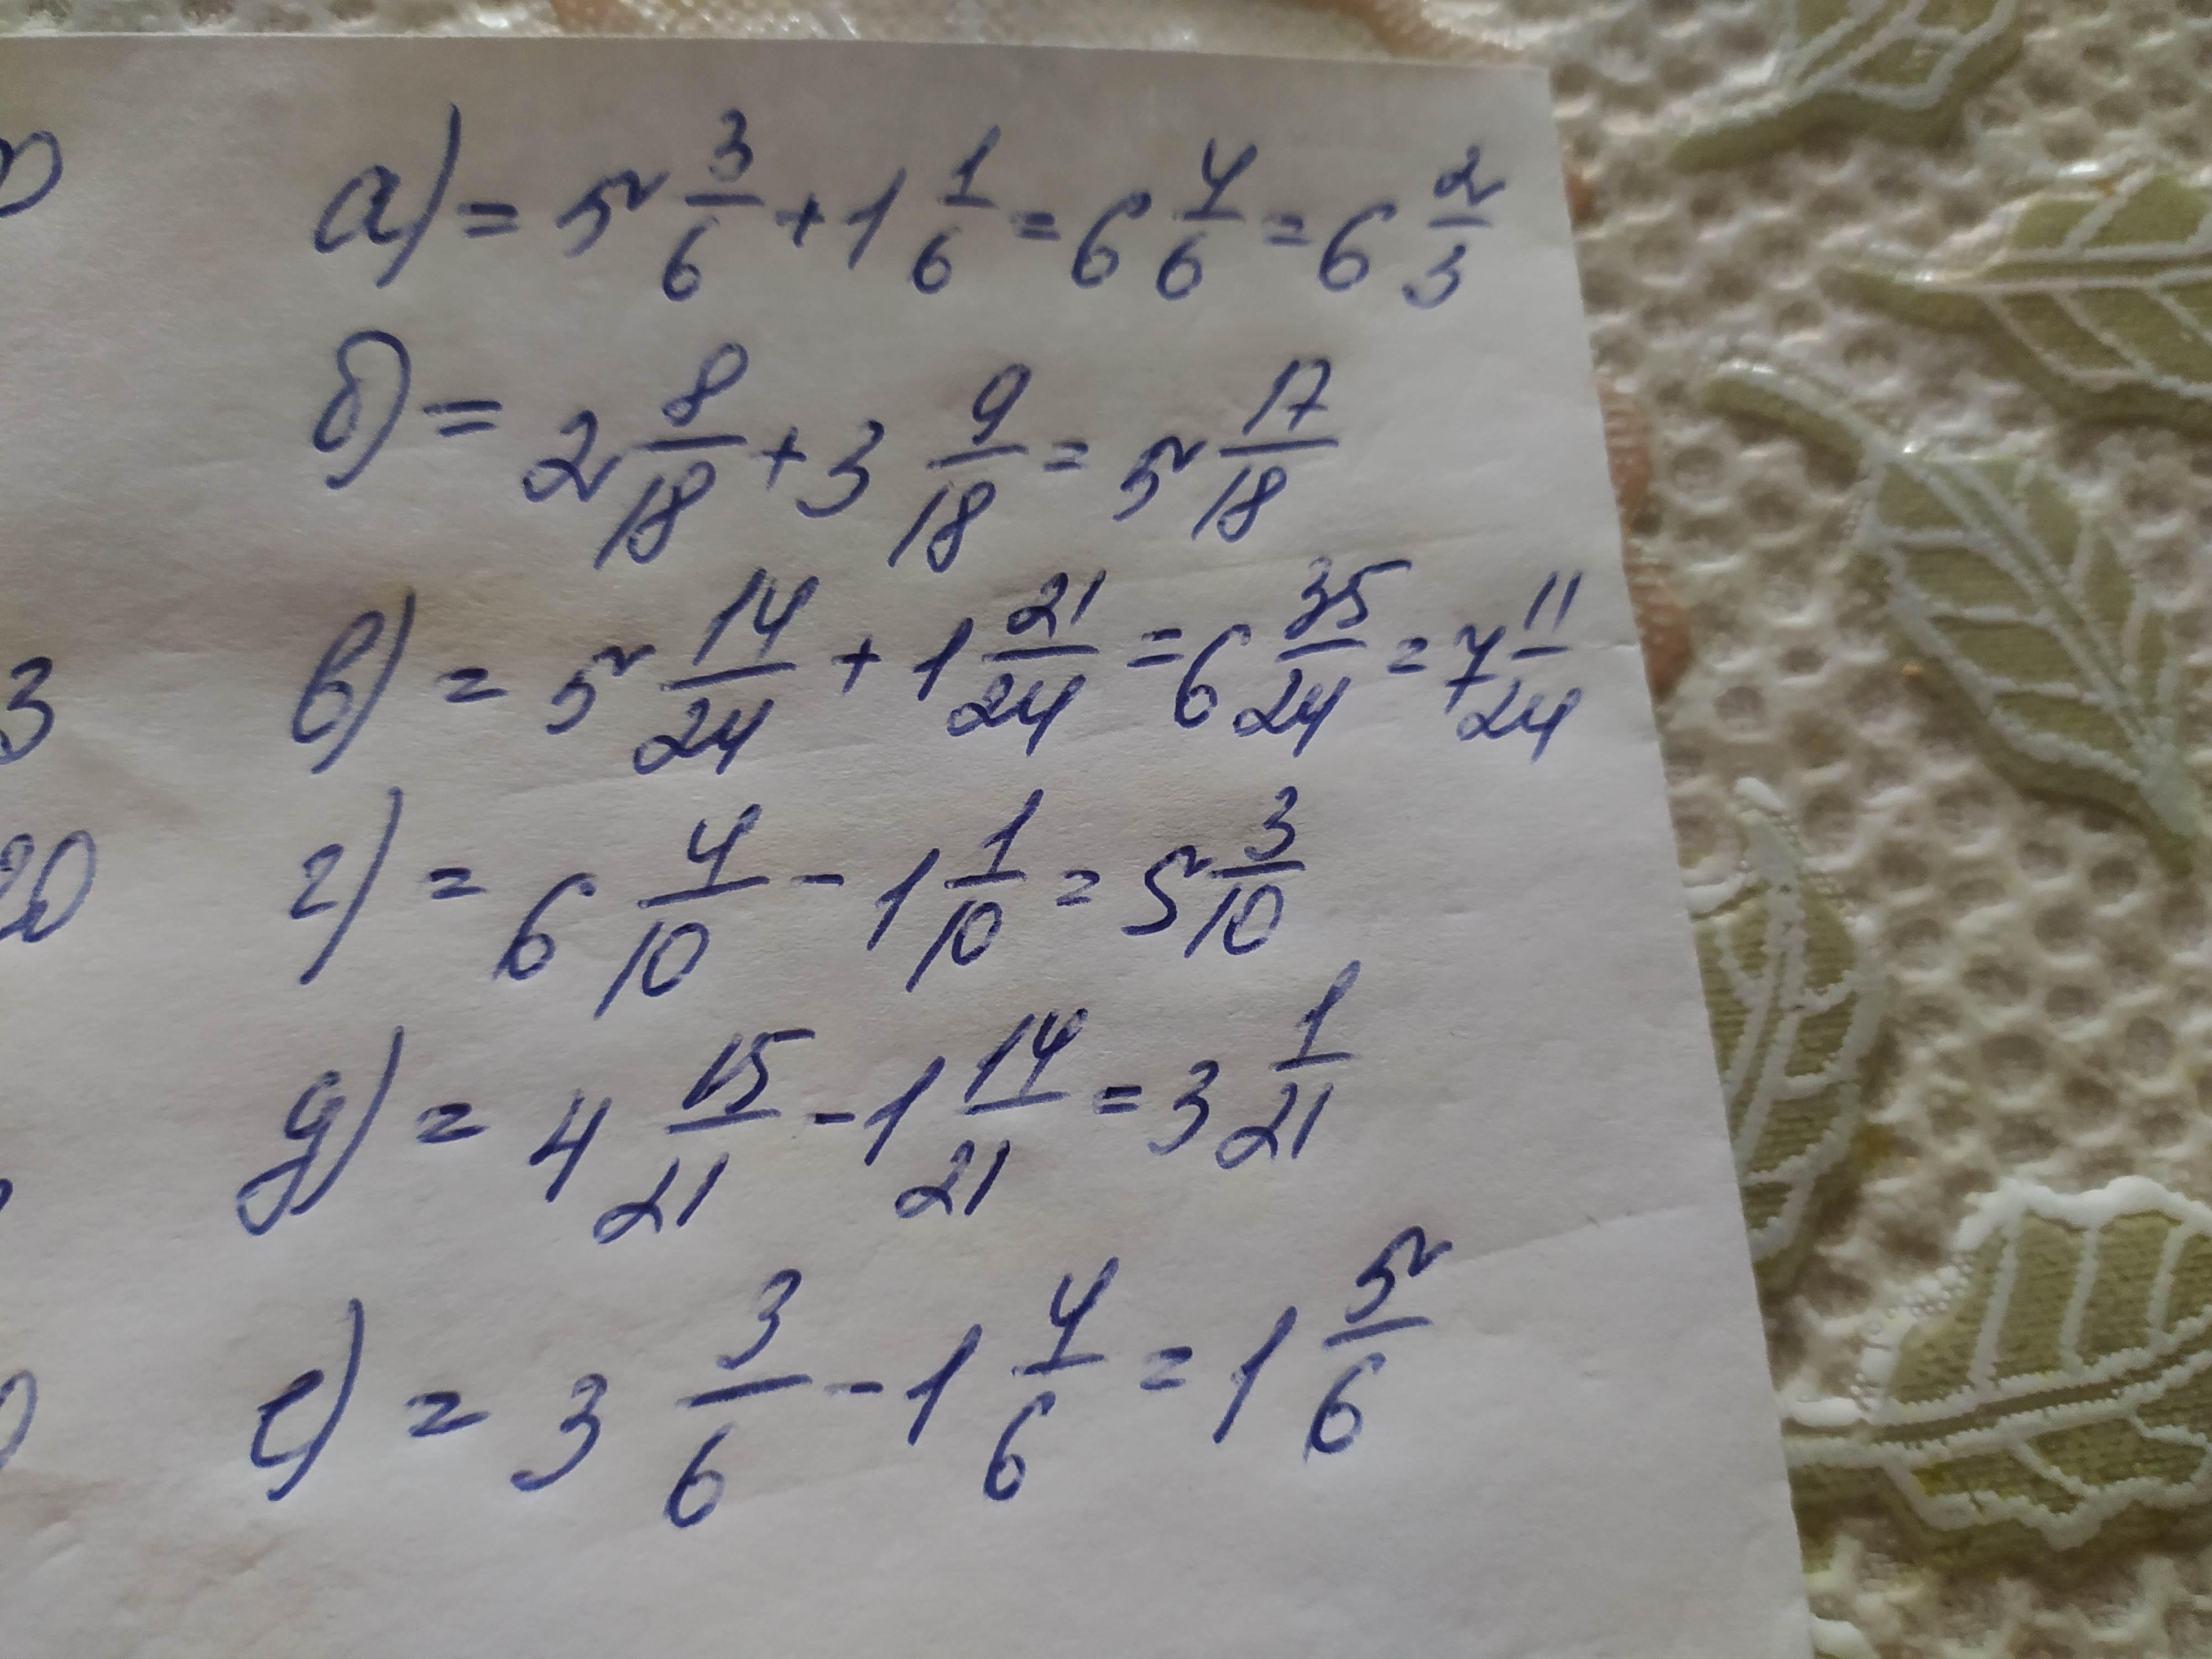 а) = 5 3/6 + 1 1/6 = 6 4/6 = 6 2/3
б) = 2 8/18 + 3 9/18 = 5 17/18
3 в) = 5 14/24 + 1 21/24 = 6 35/24 = 7 11/24
20 г) = 6 4/10 - 1 1/10 = 5 3/10
д) = 4 15/21 - 1 14/21 = 3 1/21
е) = 3 3/6 - 1 4/6 = 1 5/6